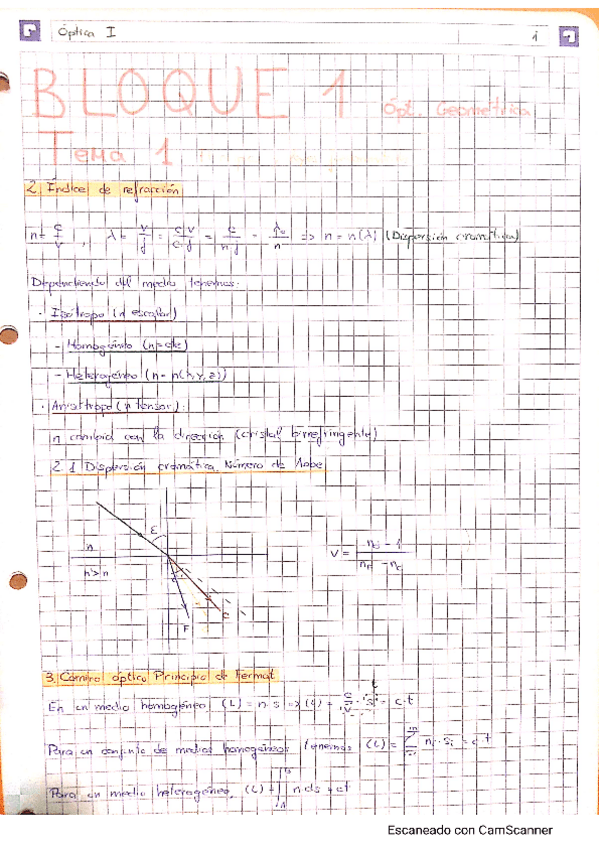 Óptica I 1
BLOQUE 1 Ópt. Geométrica
Tema 1
2. Índice de refracción
n = c/v , λ = v/f = c·v/c·f = c/n·f = λ₀/n ⇒ n = n(λ) (Dispersión cromática)
Dependiendo del medio tenemos:
· Isótropo (n escalar)
- Homogéneo (n = cte)
- Heterogéneo (n = n(x,y,z))
· Anisótropo (n tensor):
n cambia con la dirección (cristal birrefringente)
2.1 Dispersión cromática. Número de Abbe
ε
n
n'>n
C
F
V = (n_d - 1)/(n_F - n_C)
3. Camino óptico Principio de Fermat
En un medio homogéneo (L) = n·s ⇒ (L) = c/v · s = c·t
t
Para un conjunto de medios homogéneos tenemos (L) = Σ nᵢ·sᵢ = c·t
Para un medio heterogéneo, (L) = ∫ n ds = ct
Escaneado con CamScanner